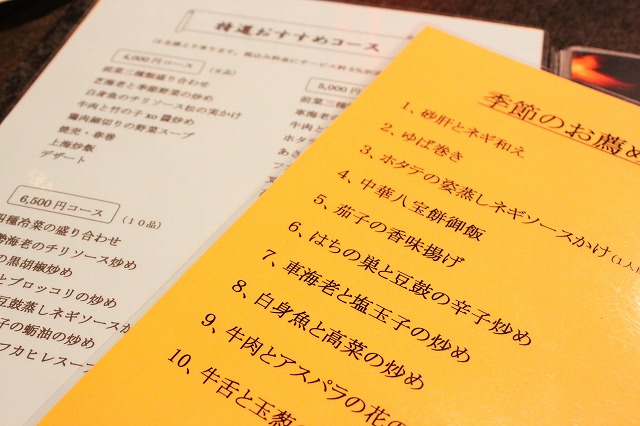 特選おすすめコース
4,000円コース (8品)
前菜三種類盛り合わせ
芝海老と季節野菜の炒め
白身魚のチリソース松の実かけ
牛肉と竹の子xo醤炒め
鶏肉細切りの野菜スープ
焼売・春巻
上海炒飯
デザート
5,000
前菜三種
車海老の
牛肉と
ホタ
あさ
6,500円コース (10品)
四種冷菜の盛り合わせ
勢海老のチリソース炒め
の黒胡椒炒め
とブロッコリの炒め
豆鼓蒸しネギソースか
子の蛎油の炒め
フカヒレスープ
季節のお薦め
1、砂肝とネギ和え
2、ゆば巻き
3、ホタテの姿蒸しネギソースかけ(1人
4、中華八宝餅御飯
5、茄子の香味揚げ
6、はちの巣と豆鼓の辛子炒め
7、車海老と塩玉子の炒め
8、白身魚と高菜の炒め
9、牛肉とアスパラの花の
10、牛舌と玉葱の